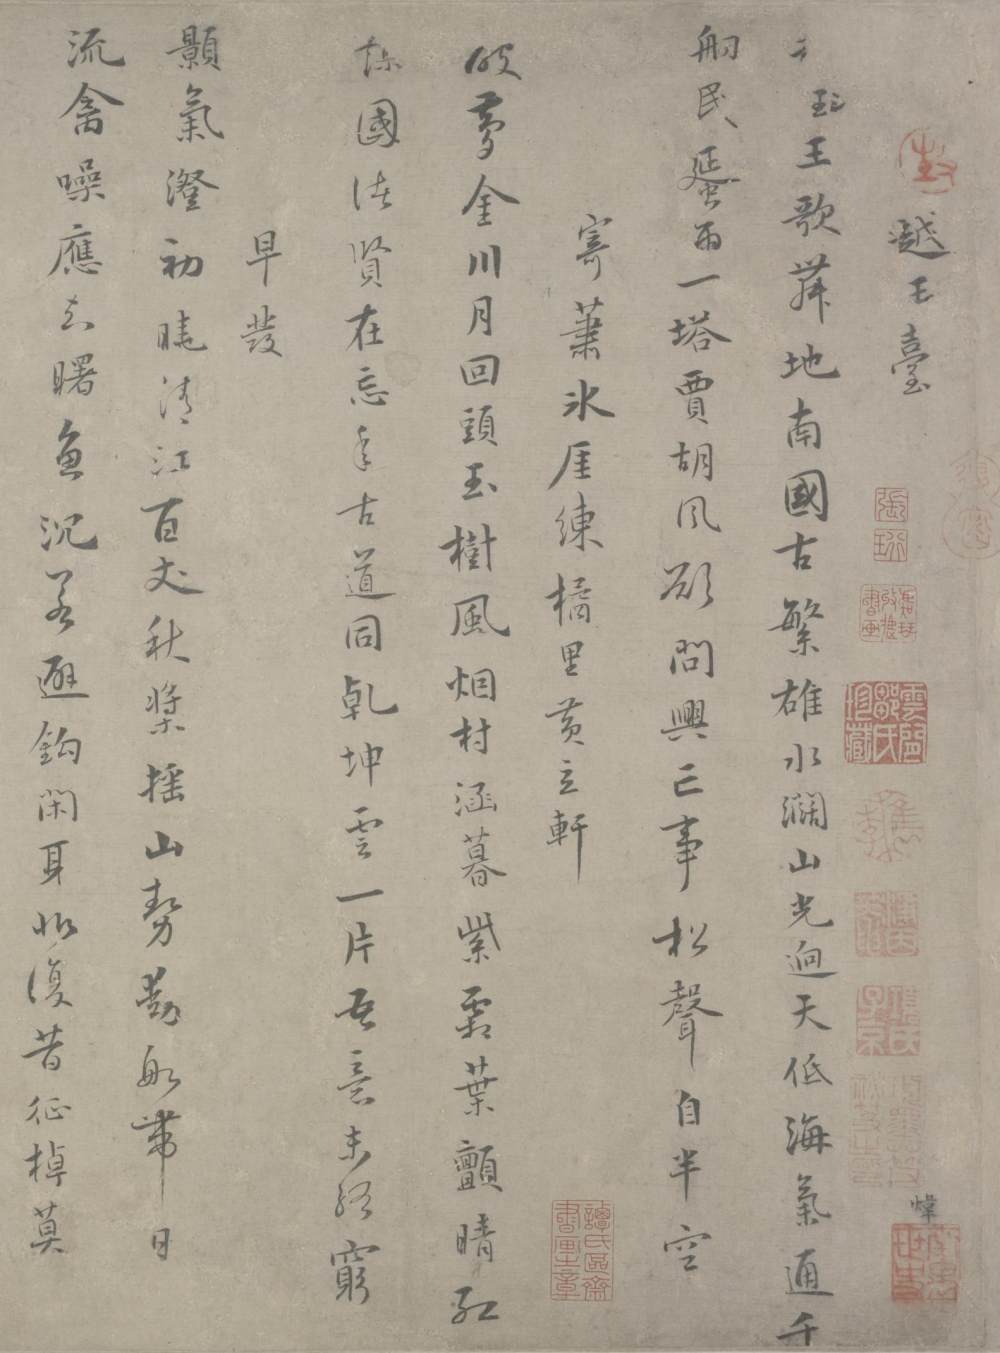 越王臺
玉王歌舞地南國古繁雄水濶山光逈天低海氣通千
民蜑雨一塔賈胡風欲問興亡事松聲自半空
寄蕭氷厓練橘里黄立軒
故夢金川月回頭玉樹風烟村涵暮紫霜葉顫晴紅
憂國諸賢在忘年古道同乾坤雲一片吾意未終窮
早發
顥氣澄初曉清江百丈秋槳揺山勢動船帶日
流禽噪應知曙魚沉若避鈎閑耳非復昔征棹莫